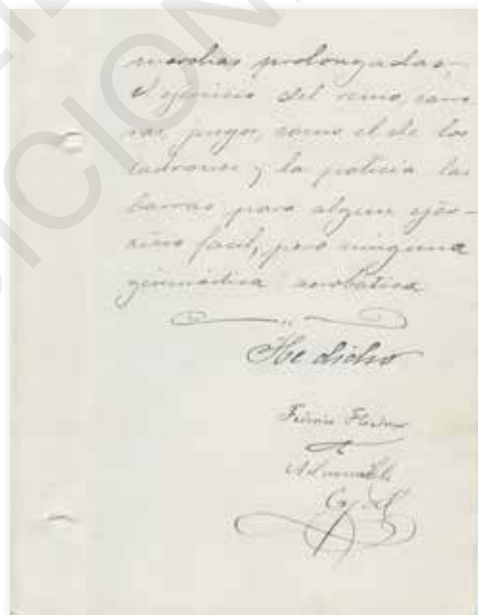 marchas prolongadas,
el ejercicio del remo, carre-
ras, juegos, como el de los
ladrones y la policía las
barras para algun ejer-
cicio facil, pero ninguna
gimnástica acrobática
He dicho